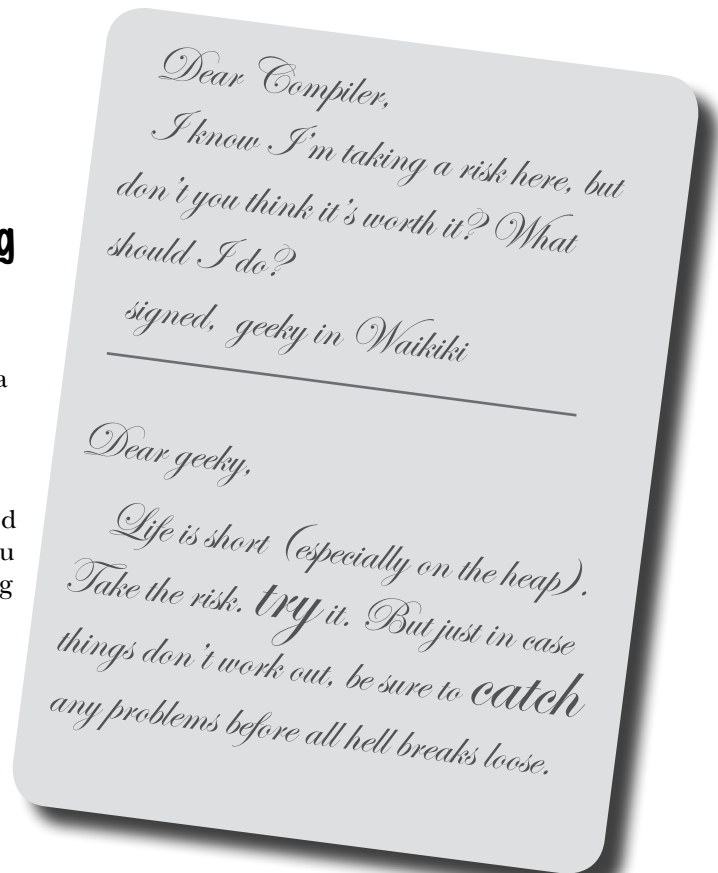 g
a
d
u
g
Dear Compiler,
I know I'm taking a risk here, but
don't you think it's worth it? What
should I do?
signed, geeky in Waikiki
Dear geeky,
Life is short (especially on the heap).
Take the risk. try it. But just in case
things don't work out, be sure to catch
any problems before all hell breaks loose.